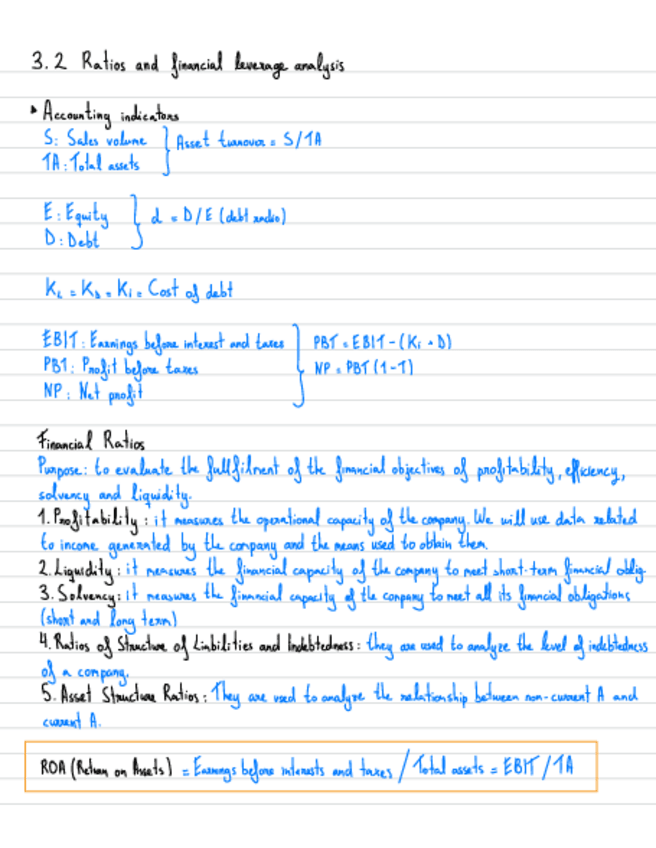 3.2 Ratios and financial leverage analysis
• Accounting indicators
S: Sales volume
TA: Total assets
Asset turnover = S/TA
E: Equity
D: Debt
d = D/E (debt ratio)
KL = Kb = Ki = Cost of debt
EBIT: Earnings before interest and taxes
PBT: Profit before taxes
NP: Net profit
PBT = EBIT - (Ki · D)
NP = PBT (1-T)
Financial Ratios
Purpose: to evaluate the fullfilment of the financial objectives of profitability, efficiency,
solvency and liquidity.
1. Profitability: it measures the operational capacity of the company. We will use data related
to income generated by the company and the means used to obtain them.
2. Liquidity: it measures the financial capacity of the company to meet short-term financial oblig.
3. Solvency: it measures the financial capacity of the company to meet all its financial obligations
(short and long term)
4. Ratios of Structure of Liabilities and Indebtedness: they are used to analyze the level of indebtedness
of a company.
5. Asset Structure Ratios: They are used to analyze the relationship between non-current A and
current A.
ROA (Return on Assets) = Earnings before interests and taxes / Total assets = EBIT / TA